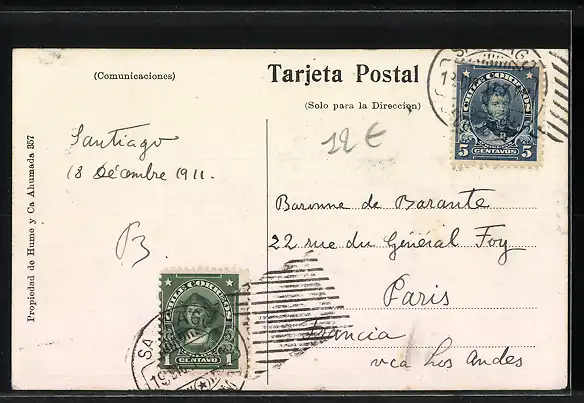 (Comunicaciones)
Tarjeta Postal
(Solo para la Direccion)
12 €
Santiago
18 Décembre 1911.
B
Propiedad de Hume y Ca Ahumada 357
Baronne de Barante
22 rue du Général Foy
Paris
Francia
via Los Andes
CHILE CORREOS
5 5
CENTAVOS
CHILE CORREOS
1 1
CENTAVO
SANTIAGO
SANTIAGO